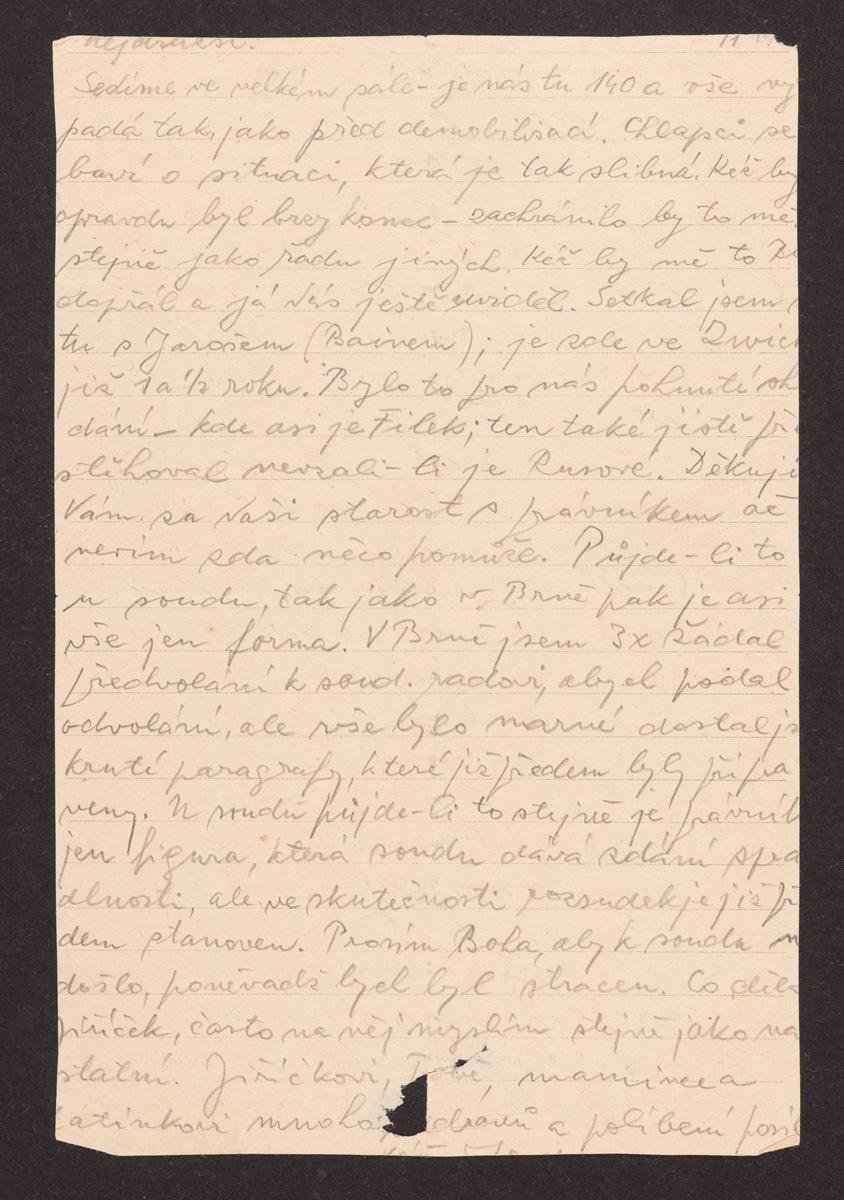 nejdražší. 11
Sedíme ve velkém sále - je nás tu 140 a vše vy
padá tak, jako před demobilisací. Chlapci se
baví o situaci, která je tak slibná. Kéž by
opravdu byl brzy konec - zachránilo by to mě
stejně jako řadu jiných. Kéž by mě to
dopřál a já Vás ještě uviděl. Setkal jsem
tu s Jarošem (Bainem); je zde ve Zwic
již 1 a ½ roku. Bylo to pro nás pohnuté sh
dání - kde asi je Filek; ten také jistě při
stěhoval nevzali-li je Rusové. Děkuji
Vám za Vaši starost s právníkem ač
nevím zda něco pomůže. Půjde-li to
u soudu, tak jako v Brně pak je asi
vše jen forma. V Brně jsem 3x žádal
předvolání k soud. radovi, abych podal
odvolání, ale vše bylo marné dostal js
kruté paragrafy, které již předem byly připra
veny. U soudu půjde-li to stejně je právník
jen figura, která soudu dává zdání spra
dlnosti, ale ve skutečnosti rozsudek je již př
dem stanoven. Prosím Boha, aby k soudu n
došlo, poněvadž bych byl ztracen. Co dělá
Jiříček, často na něj myslím stejně jako na
statní. Jiříčkovi, Tobě, mamince a
atínkovi mnoho pozdravů a políbení posíl